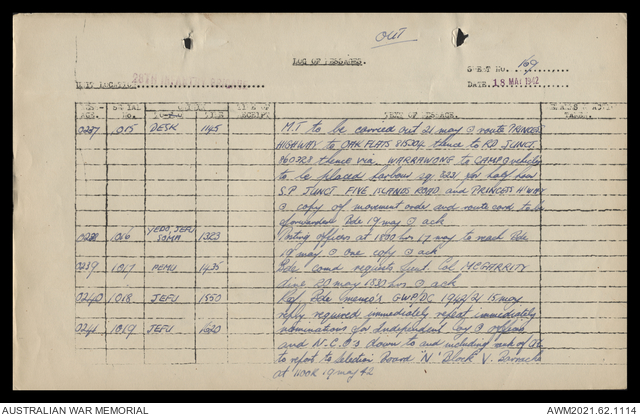 OUT
LOG OF MESSAGES.
SHEET NO. 169
UNIT LOCATION
DATE. 18 MAY 1942
SERIAL No. TIME TIME OF RECEIPT TEXT OF MESSAGE. TAKEN.
0237 1015 DESK 1145 M.T to be carried out 21 may @ route PRINCES
HIGHWAY to OAK FLATS thence to RD JUNCT.
thence via WARRAWONG to CAMP @ vehicles
to be placed harbour half hour
S.P JUNCT. FIVE ISLANDS ROAD and PRINCES H'WAY
@ copy of movement order and route card to be
Bde 19 may @ ack
0238 1016 YEDO, JEFU 1323 Posting officers at 1800 hrs 17 may to reach Bde
19 may @ one copy @ ack
0239 1017 1435 Bde comd requests Lieut Col McGARRITY
dine 20 may 1830 hrs @ ack
0240 1018 JEFU 1550 Ref Bde 15 may
reply required immediately repeat immediately
0241 1019 JEFU 1620 nominations for Independent Coy @ officers
and N.C.O's down to and including rank of
to report to Selection Board 'N' Block V. Barracks
at 1100K 19 may 42
AUSTRALIAN WAR MEMORIAL
AWM2021.62.1114